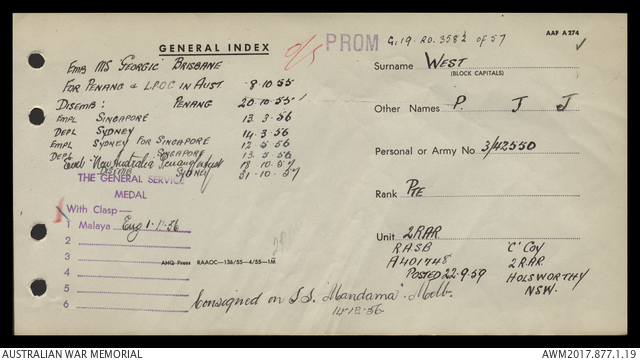 GENERAL INDEX
O/S
PROM
G.19. RO. 3582 OF 57
AAF A 274
EMB MS "GEORGIC" BRISBANE
FOR PENANG & L.P.O.C IN AUST. 8·10·55
DISEMB: PENANG 20·10·55
EMPL SINGAPORE 13·3·56
DEPL SYDNEY 14·3·56
EMPL SYDNEY FOR SINGAPORE 12·5·56
DEPL SINGAPORE 13·5·56
Emb: "New Australia" Penang 10·57
DISEMB SYDNEY 31·10·57
THE GENERAL SERVICE
MEDAL
With Clasp—
1 Malaya 1·11·56
2
3
4
5
6
AHQ Press RAAOC—136/55—4/55—1M
Consigned on S.S. "Mandama" Melb.
14·12·56
Surname WEST
(BLOCK CAPITALS)
Other Names P. J J
Personal or Army No. 3/42550
Rank PTE
Unit 2RAR
RASB
A401748
POSTED 22·9·59
'C' COY
2RAR.
HOLSWORTHY
NSW.
AUSTRALIAN WAR MEMORIAL
AWM2017.877.1.19